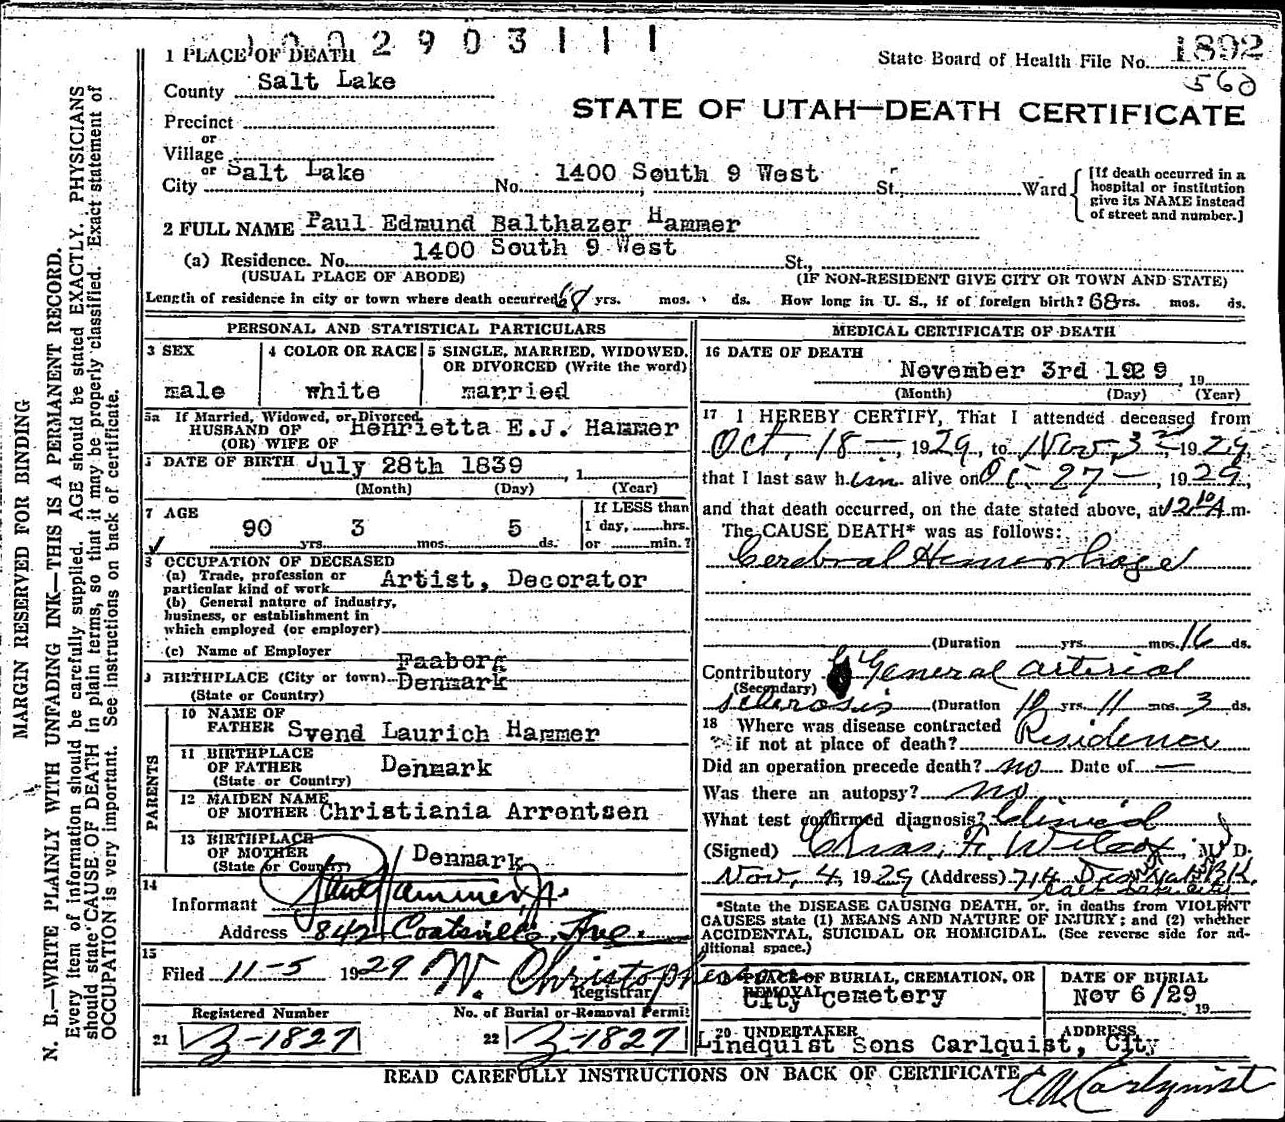 1002903111
1 PLACE OF DEATH
State Board of Health File No. 1892
560
County Salt Lake
STATE OF UTAH—DEATH CERTIFICATE
Precinct
or
Village
or
City Salt Lake No. 1400 South 9 West St., Ward
[If death occurred in a
hospital or institution
give its NAME instead
of street and number.]
2 FULL NAME Paul Edmund Balthazer Hammer
(a) Residence. No. 1400 South 9 West St.,
(USUAL PLACE OF ABODE) (IF NON-RESIDENT GIVE CITY OR TOWN AND STATE)
Length of residence in city or town where death occurred 68 yrs. mos. ds. How long in U. S., if of foreign birth? 68 yrs. mos. ds.
PERSONAL AND STATISTICAL PARTICULARS
3 SEX
male
4 COLOR OR RACE
white
5 SINGLE, MARRIED, WIDOWED,
OR DIVORCED (Write the word)
married
5a If Married, Widowed, or Divorced
HUSBAND OF Henrietta E.J. Hammer
(OR) WIFE OF
DATE OF BIRTH July 28th 1839, 1
(Month) (Day) (Year)
7 AGE
90 yrs. 3 mos. 5 ds.
If LESS than
1 day, hrs.
or min.?
8 OCCUPATION OF DECEASED
(a) Trade, profession or
particular kind of work Artist, Decorator
(b) General nature of industry,
business, or establishment in
which employed (or employer)
(c) Name of Employer
9 BIRTHPLACE (City or town) Faaborg
Denmark
(State or Country)
PARENTS
10 NAME OF
FATHER Svend Laurich Hammer
11 BIRTHPLACE
OF FATHER Denmark
(State or Country)
12 MAIDEN NAME
OF MOTHER Christiania Arrentsen
13 BIRTHPLACE
OF MOTHER Denmark
(State or Country)
14
Informant Paul Hammer, Jr.
Address 842 Coatsville Ave.
15
Filed 11-5 1929 W. Christopherson
Registrar
Registered Number
21 B-1827
No. of Burial or Removal Permit
22 B-1827
MEDICAL CERTIFICATE OF DEATH
16 DATE OF DEATH
November 3rd 1929, 19
(Month) (Day) (Year)
17 I HEREBY CERTIFY, That I attended deceased from
Oct, 18-, 1929, to Nov, 3rd 1929,
that I last saw him alive on Oc. 27-, 1929,
and that death occurred, on the date stated above, at 12 10 A m.
The CAUSE DEATH* was as follows:
Cerebral Hemorrhage
(Duration yrs. mos. 16 ds.
Contributory General arterial
(Secondary)
sclerosis (Duration 10 yrs. 11 mos. 3 ds.
18 Where was disease contracted
if not at place of death? Residence
Did an operation precede death? no Date of —
Was there an autopsy? no
What test confirmed diagnosis? Clinical
(Signed) Chas. F. Wilcox, M. D.
Nov, 4, 1929 (Address) 714
Salt Lake City
*State the DISEASE CAUSING DEATH, or, in deaths from VIOLENT
CAUSES state (1) MEANS AND NATURE OF INJURY; and (2) whether
ACCIDENTAL, SUICIDAL OR HOMICIDAL. (See reverse side for ad-
ditional space.)
19 PLACE OF BURIAL, CREMATION, OR
REMOVAL
City Cemetery
DATE OF BURIAL
Nov 6/29 19
20 UNDERTAKER
Lindquist Sons Carlquist,
ADDRESS
City
READ CAREFULLY INSTRUCTIONS ON BACK OF CERTIFICATE
C W Carlquist
MARGIN RESERVED FOR BINDING
N. B.—WRITE PLAINLY WITH UNFADING INK—THIS IS A PERMANENT RECORD.
Every item of information should be carefully supplied. AGE should be stated EXACTLY. PHYSICIANS
should state CAUSE OF DEATH in plain terms, so that it may be properly classified. Exact statement of
OCCUPATION is very important. See instructions on back of certificate.